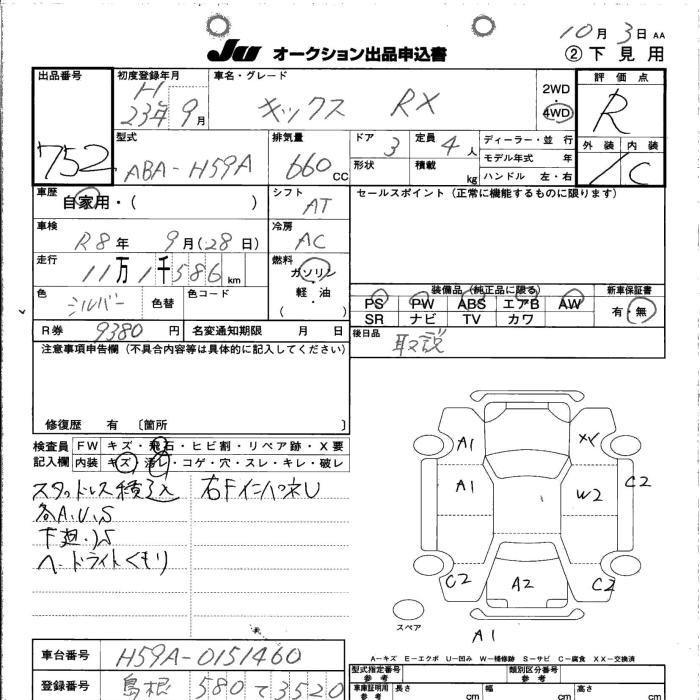 10月 3日 AA
JU オークション出品申込書 ②下見用
出品番号 初度登録年月 車名・グレード 評価点
752
H 23年 9月
キックス RX
2WD・4WD
R
型式 排気量 ドア 3 定員 4人 ディーラー・並行 外装 内装
ABA-H59A 660cc 形状 積載 kg モデル年式 年
ハンドル 左・右
C
車歴 自家用・( ) シフト AT セールスポイント(正常に機能するものに限ります)
車検 R8年 9月(28日) 冷房 AC
走行 11万1千586km 燃料 ガソリン 軽・油 ( )
装備品(純正品に限る) 新車保証書
色 シルバー 色替 色コード
PS PW ABS エアB AW 有・無
SR ナビ TV カワ
R券 9380円 名変通知期限 月 日
後日品 取説
注意事項申告欄(不具合内容等は具体的に記入してください)
修復歴 有 〔箇所 〕
検査員記入欄
FW キズ・飛石・ヒビ割・リペア跡・X要
内装 キズ・汚レ・コゲ・穴・スレ・キレ・破レ
スタッドレス積込
右Fインハネし
各A.U.S
下廻りS
ヘッドライトくもり
A1 XX
A1 W2 C2
C2 A2 C2
スペア A1
A-キズ E-エクボ U-凹み W-補修跡 S-サビ C-腐食 XX-交換済
車台番号 H59A-0151460
型式指定番号 参考 類別区分番号 参考
登録番号 島根 580 て 3520
車庫証明用 参考 長さ cm 幅 cm 高さ cm